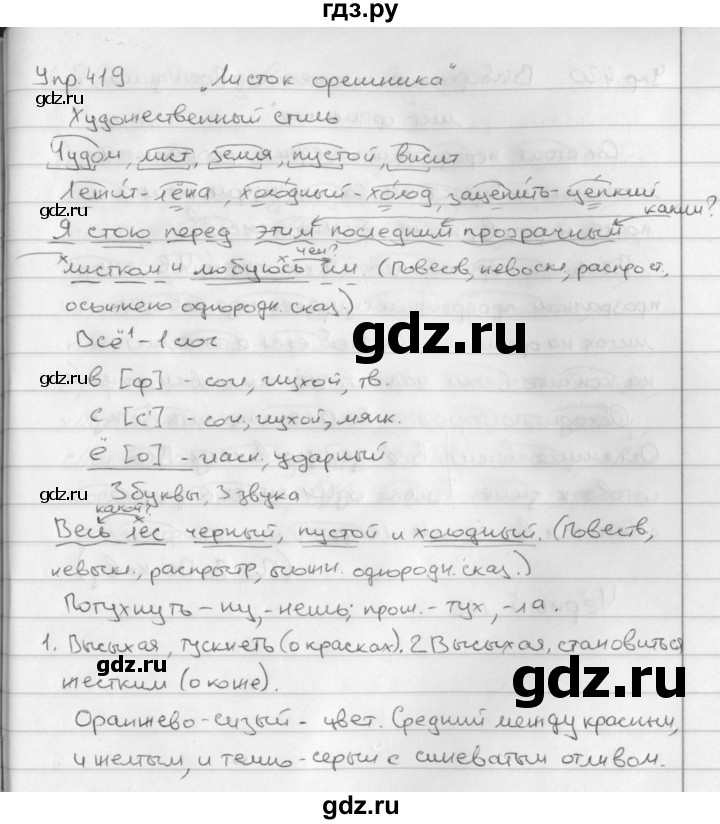 гдз.ру
Упр.419 „Листок орешника"
gdz.ru
Художественный стиль
Чудом, лист, земля, пустой, висит
gdz.ru
Летит-лёжа, холодный-холод, зацепить-цепкий
какими?
gdz.ru
Я стою перед этим последним прозрачным
чем?
листком и любуюсь им. (Повеств, невоскл, распрост,
gdz.ru
осложнено однородн. сказ.)
gdz.ru
Всё - 1 слог
gdz.ru
в [ф] - согл, глухой, тв.
с [с'] - согл, глухой, мягк.
gdz.ru
ё [о] - гласн, ударный
gdz.ru
3 буквы, 3 звука
какой?
gdz.ru
Весь лес черный, пустой и холодный. (Повеств,
невыкл., распрыстр, ослошн. однородн. сказ.)
gdz.ru
Потухнуть - ну, -нешь; прош. - тух, -ла.
1. Высыхая, тускнеть (о красках). 2 Высыхая, становиться
gdz.ru
жестким (о коже).
gdz.ru
Оранжево-сизый - цвет. Средний между красным,
gdz.ru
и желтым, и темно-серым с синеватым отливом.
gdz.ru